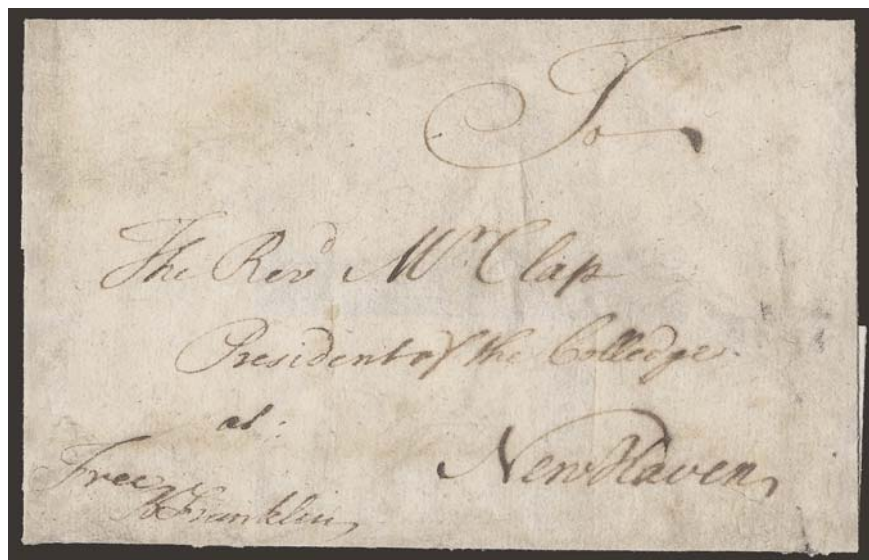 To
The Revd Mr Clap
President of the Colledge
at:
New Haven
Free
B Franklin